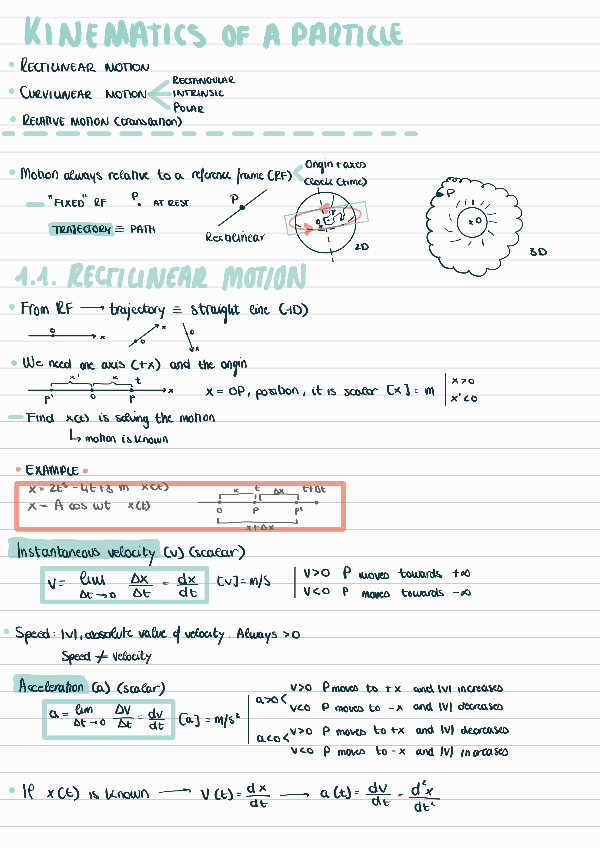 KINEMATICS OF A PARTICLE
• RECTILINEAR MOTION
• CURVILINEAR MOTION
RECTANGULAR
INTRINSIC
POLAR
• RELATIVE MOTION (translation)
• Motion always relative to a reference frame (RF)
Origin + axes
Clock (time)
"FIXED" RF P. AT REST
TRAJECTORY ≡ PATH
P
Rectilinear
2D
P
O
3D
1.1. RECTILINEAR MOTION
• From RF → trajectory ≡ straight line (1D)
O x
O x
O x
• We need one axis (+x) and the origin
x' x t
P' O P x
x = OP, position, it is scalar [x] = m
x>0
x'<0
Find x(t) is solving the motion
↳ motion is known
• EXAMPLE •
x = 2t³ - 4t + 3 m x(t)
x = A cos wt x(t)
x t Δx t+Δt
O P P'
x+Δx
Instantaneous velocity (v) (scalar)
v = lim Δt→0 Δx/Δt = dx/dt [v] = m/s
v>0 P moves towards +∞
v<0 P moves towards -∞
• Speed: |v|, absolute value of velocity. Always >0
Speed ≠ velocity
Acceleration (a) (scalar)
a = lim Δt→0 Δv/Δt = dv/dt [a] = m/s²
a>0 < v>0 P moves to +x and |v| increases
v<0 P moves to -x and |v| decreases
a<0 < v>0 P moves to +x and |v| decreases
v<0 P moves to -x and |v| increases
• If x(t) is known → v(t) = dx/dt → a(t) = dv/dt = d²x/dt²